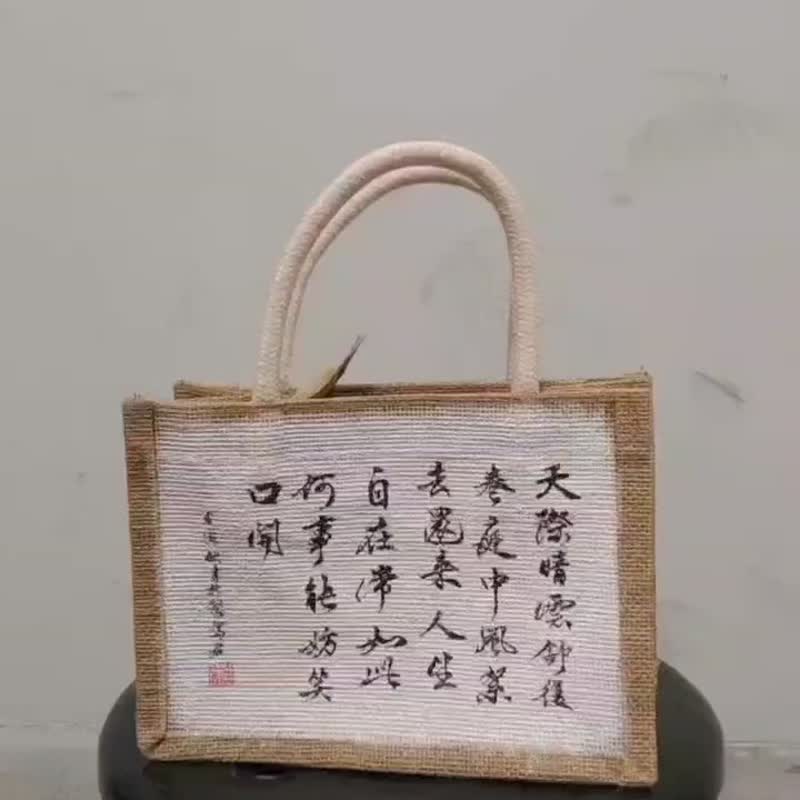 天際晴雲舒復
卷庭中風絮
去還来人生
自在常如此
何事能妨笑
口開